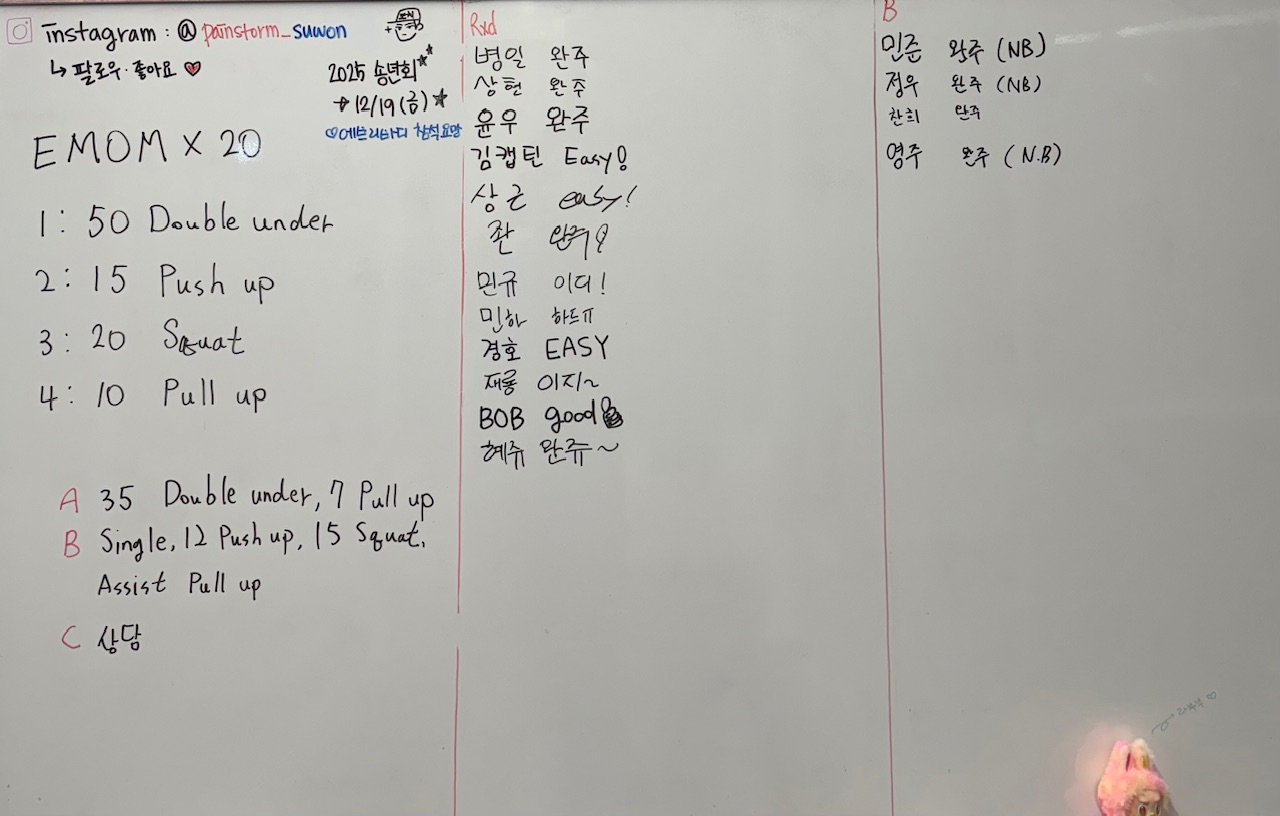 instagram : @ painstorm_suwon
↳ 팔로우·좋아요 ♥
2025 송년회
→ 12/19(금)
♡에브리바디 참석요망
EMOM X 20
1 : 50 Double under
2 : 15 Push up
3 : 20 Squat
4 : 10 Pull up
A 35 Double under, 7 Pull up
B Single, 12 Push up, 15 Squat,
Assist Pull up
C 상담
Rxd
병일 완주
상현 완주
윤우 완주
김캡틴 Easy!
상근 easy!
좐 완주!
민규 이디!
민하 하드ㅠ
경호 EASY
재룡 이지~
BOB good
혜쥬 완쥬~
B
민준 완주 (NB)
정우 완주 (NB)
찬희 완주
영주 완주 (N.B)